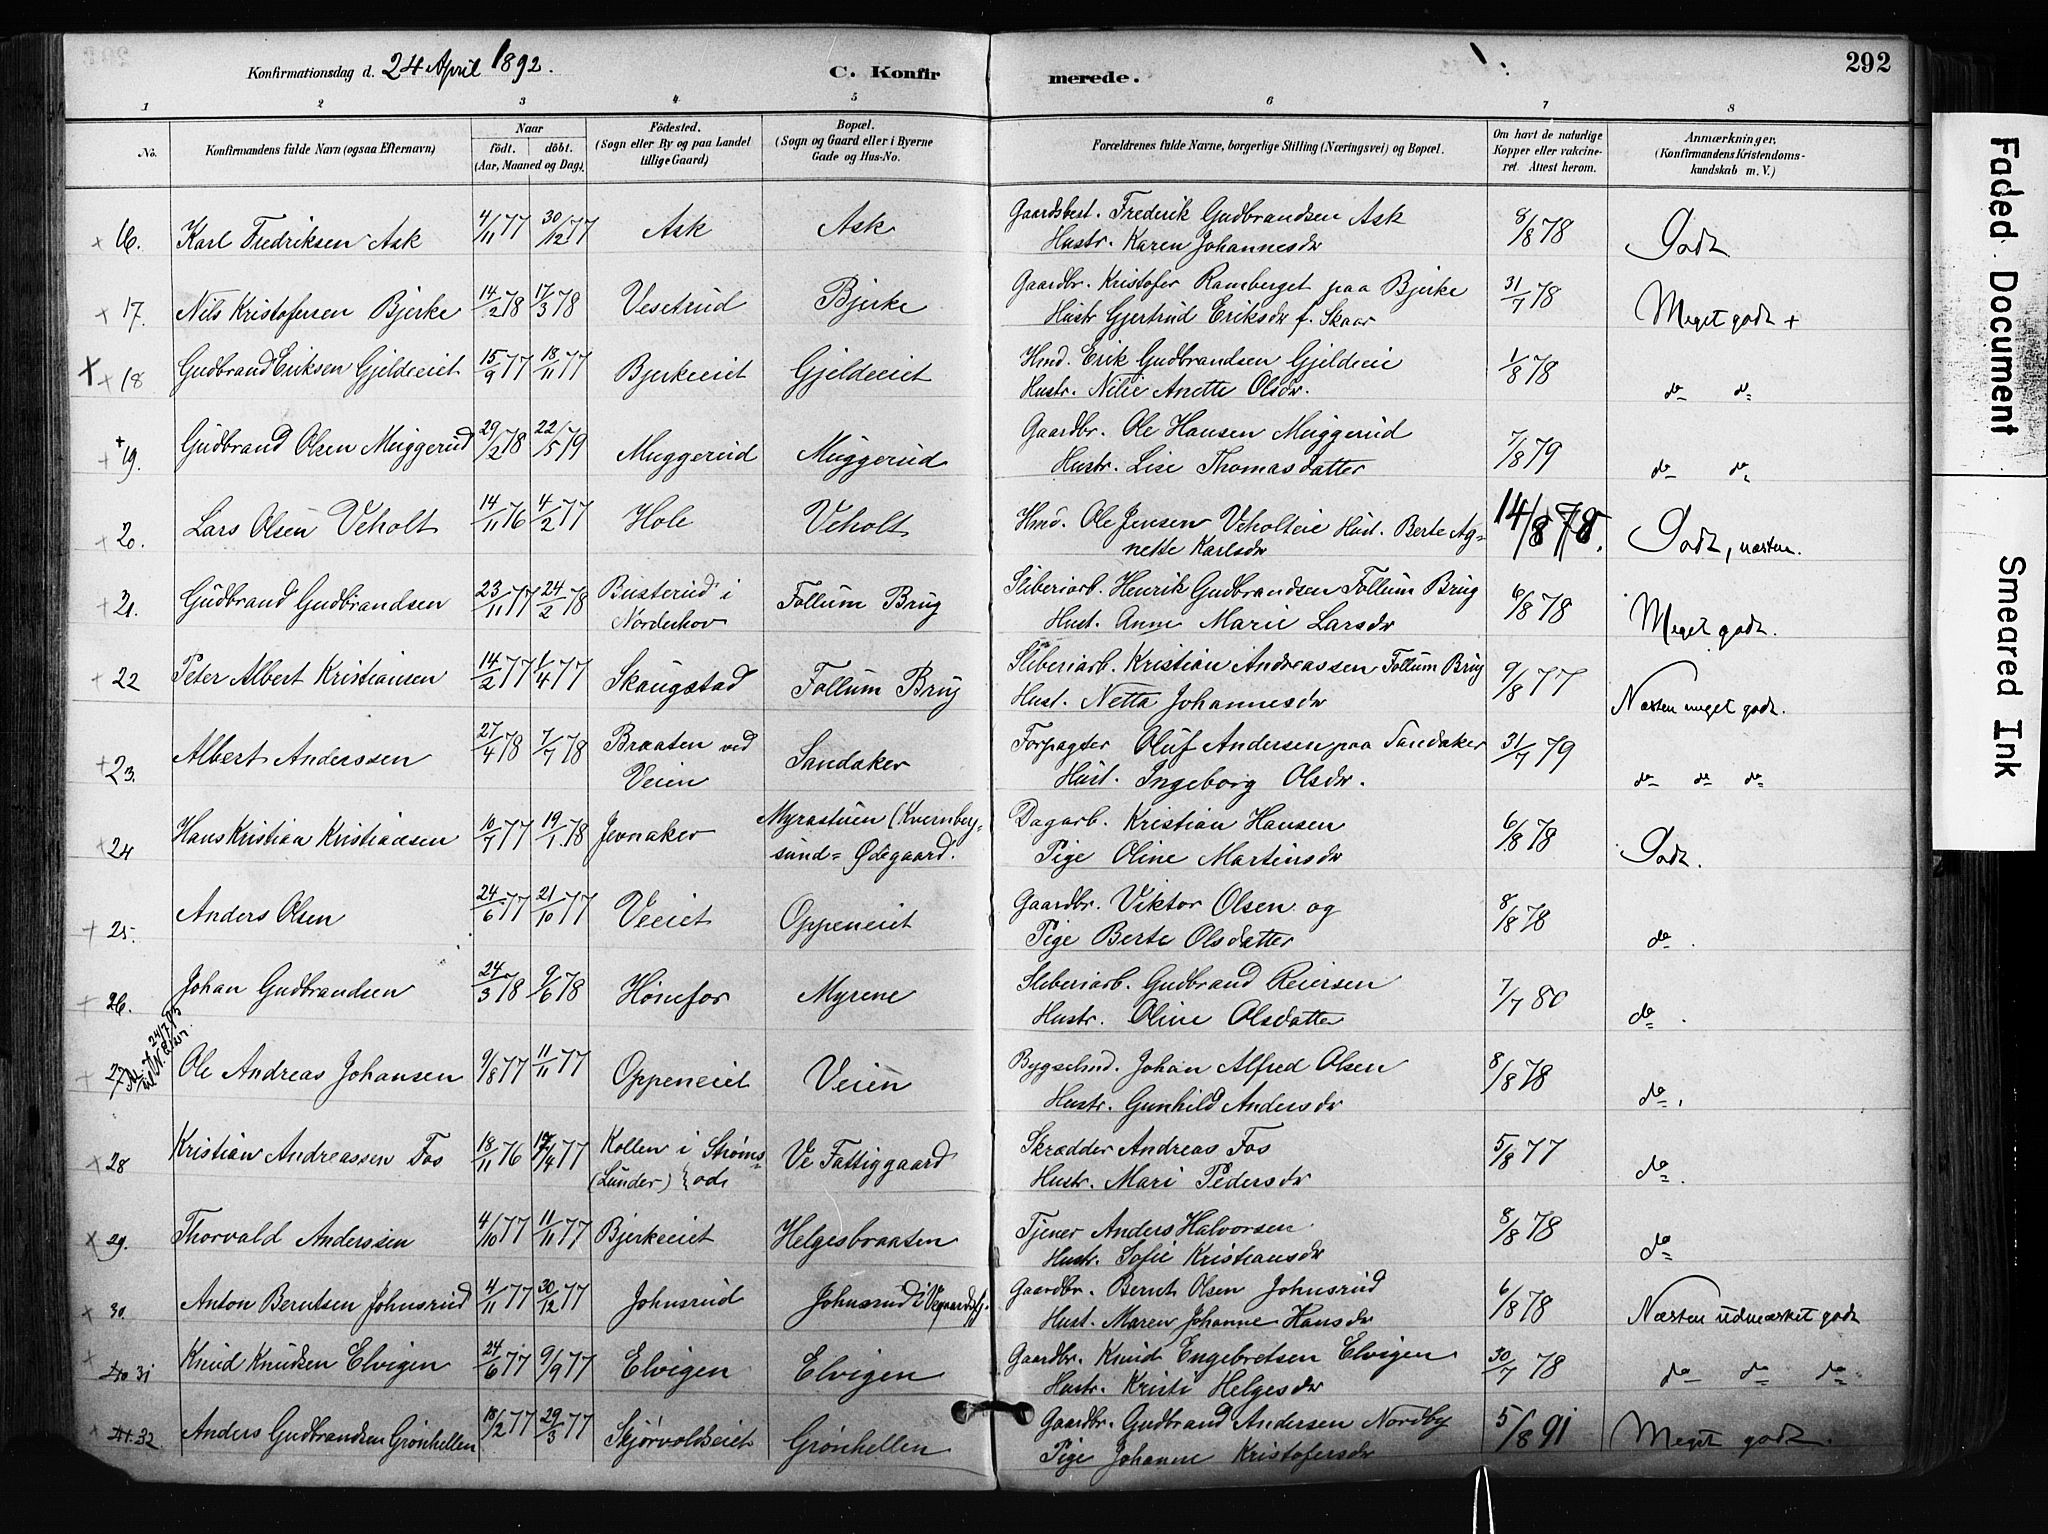 Konfirmationsdag d. 24 April 1892. C. Konfirmerede. 292
1 2 3 4 5 6 7 8
No. Konfirmandens fulde Navn (ogsaa Efternavn) Naar født. døbt. (Aar, Maaned og Dag). Födested. (Sogn eller By og paa Landet tillige Gaard) Bopæl. (Sogn og Gaard eller i Byerne Gade og Hus-No. Forældrenes fulde Navne, borgerlige Stilling (Næringsvei) og Bopæl. Om havt de naturlige Kopper eller vakcineret. Attest herom. Anmærkninger. (Konfirmandens Kristendomskundskab m. V.)
16. Karl Fredriksen Ask 4/11 77 30/12 77 Ask Ask Gaardbest. Frederik Gudbrandsen Ask 8/8 78 Godt
Hustr. Karen Johannesdr
17. Nils Kristofersen Bjerke 14/2 78 17/3 78 Vesetrud Bjerke Gaardbr. Kristofer Ramberget paa Bjerke 31/7 78 Meget godt +
Hustr Gjertrud Eriksdr f. Skaar
18 Gudbrand Eriksen Gjeldeeiet 15/9 77 18/11 77 Bjerkeeiet Gjeldeeiet Hmd. Erik Gudbrandsen Gjeldeie 1/8 78 do do
Hustr. Nilie Anette Olsdr.
19. Gudbrand Olsen Muggerud 29/2 78 22/5 79 Muggerud Muggerud Gaardbr. Ole Hansen Muggerud 7/8 79 do do
Hustr. Lise Thomasdatter
20. Lars Olsen Veholt 14/11 76 4/2 77 Hole Veholt Hmd. Ole Jensen Veholteie Hust. Berte Ag= 14/8 78. Godt, næsten.
nette Karlsdr
21. Gudbrand Gudbrandsen 23/11 77 24/2 78 Busterud i Follum Brug Sliberiarb. Henrik Gudbrandsen Follum Brug 6/8 78 Meget godt.
Norderhov Hust. Anne Marie Larsdr
22 Peter Albert Kristiansen 14/2 77 1/4 77 Skaugstad Follum Brug Sliberiarb. Kristian Andreassen Follum Brug 9/8 77 Næsten meget godt.
Hust. Netta Johannesdr
23. Albert Anderssen 27/4 78 7/7 78 Braaten ved Sandaker Forpagter Oluf Andersen paa Sandaker 31/7 79 do do do
Veien Hust. Ingeborg Olsdr.
24 Hans Kristian Kristiansen 10/7 77 19/1 78 Jevnaker Myrastuen (Kvernberg- Dagarb. Kristian Hansen 6/8 78 Godt.
sund= Ødegaard. Pige Oline Martinsdr
25. Anders Olsen 24/6 77 21/10 77 Veeiet Oppeneiet Gaardbr. Viktor Olsen og 8/8 78 do.
Pige Berte Olsdatter
26. Johan Gudbrandsen 24/3 78 9/6 78 Hønefos Myrene Sliberiarb. Gudbrand Reiersen 7/7 80 do.
Hustr. Oline Olsdatter
27 Ole Andreas Johansen 9/8 77 11/11 77 Oppeneiet Veien Bygselmd. Johan Alfred Olsen 8/8 78 do.
Hustr. Gunhild Andersdr
28 Kristian Andreassen Fos 18/11 76 17/4 77 Kollen i Strøms= Ve Fattiggaard Skrædder Andreas Fos 5/8 77 do.
(Lunder) od Hustr. Mari Pedersdr
29. Thorvald Anderssen 4/10 77 11/11 77 Bjerkeeiet Helgesbraaten Tjener Anders Halvorsen 8/8 78 do
Hustr. Sofie Kristiansdr
30. Anton Berntsen Johnsrud 4/11 77 30/12 77 Johnsrud Johnsrud i Gaardbr. Bernt Olsen Johnsrud 6/8 78 Næsten udmærket godt
Hust. Maren Johanne Hansdr
31 Knud Knudsen Elvigen 24/6 77 9/9 77 Elvigen Elvigen Gaardbr. Knud Engebretsen Elvigen 30/7 78 do do do
Hustr. Kristi Helgesdr
32. Anders Gudbrandsen Grønhellen 18/2 77 29/3 77 Skjørvoldseiet Grønhellen Gaardbr. Gudbrand Andersen Nordby 5/8 91 Meget godt.
Pige Johanne Kristofersdr
Faded Document
Smeared Ink